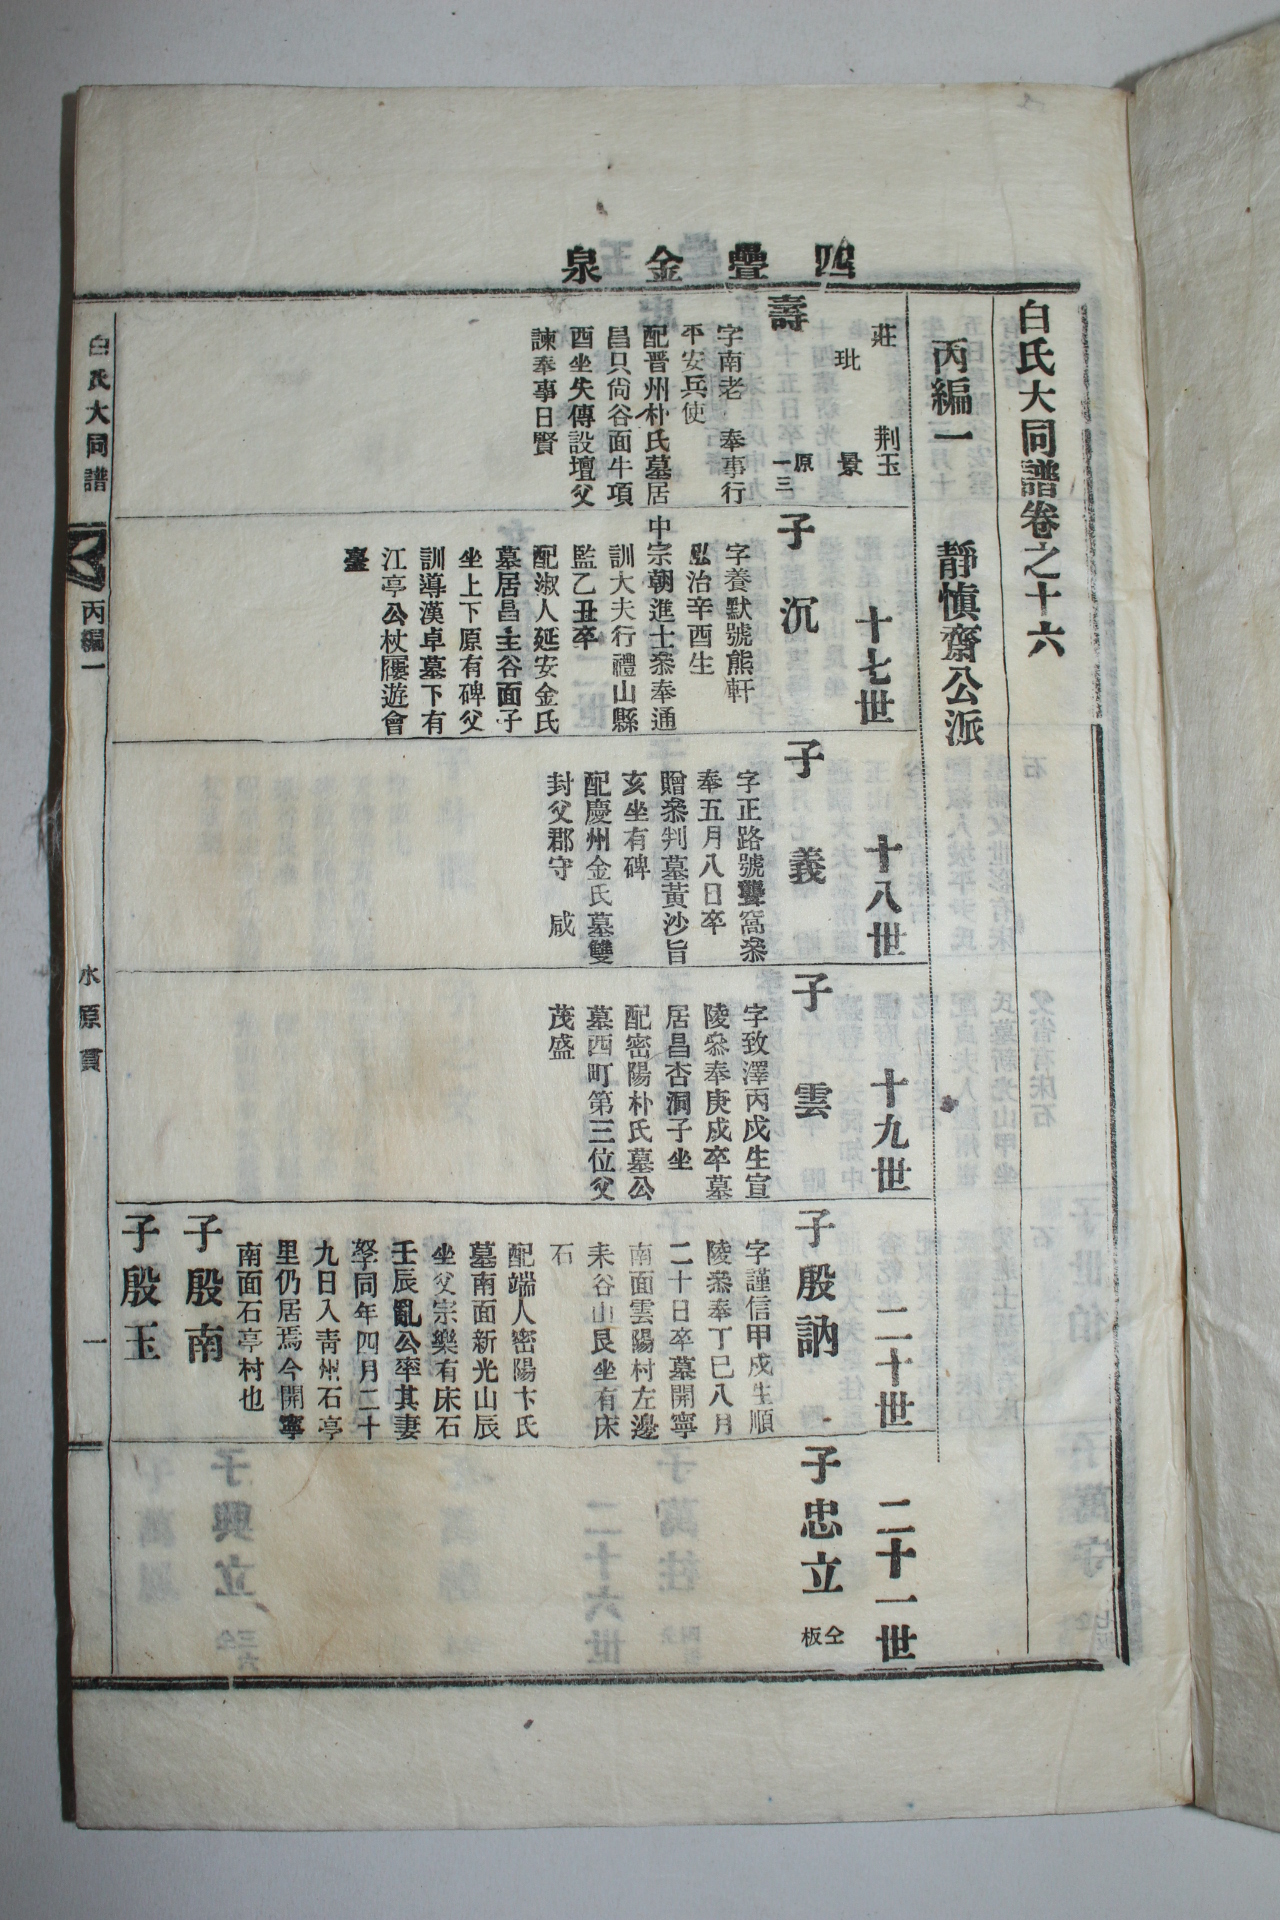 四疊金泉
白氏大同譜卷之十六
丙編一 靜愼齋公派
莊 荆玉
玭 景
壽
原一三
字南老 奉事行
平安兵使
配晋州朴氏墓居
昌只尙谷面牛項
酉坐失傳設壇父
諫奉事日賢
十七世
子沉
字養默號熊軒
弘治辛酉生
中宗朝進士叅奉通
訓大夫行禮山縣
監乙丑卒
配淑人延安金氏
墓居昌主谷面子
坐上下原有碑父
訓導漢卓墓下有
江亭公杖屨遊會
臺
十八世
子義
字正路號聾窩叅
奉五月八日卒
贈叅判墓黃沙旨
亥坐有碑
配慶州金氏墓雙
封父郡守 咸
十九世
子雲
字致澤丙戌生宣
陵叅奉庚戌卒墓
居昌杏洞子坐
配密陽朴氏墓公
墓西町第三位父
茂盛
二十世
子殷訥
字謹信甲戌生順
陵叅奉丁巳八月
二十日卒墓開寧
南面雲陽村左邊
耒谷山艮坐有床
石
配端人密陽卞氏
墓南面新光山辰
坐父宗樂有床石
壬辰亂公率其妻
孥同年四月二十
九日入靑州石亭
里仍居焉今開寧
南面石亭村也
子殷南
子殷玉
二十一世
子忠立
仝板
白氏大同譜
丙編一
水原貫
一